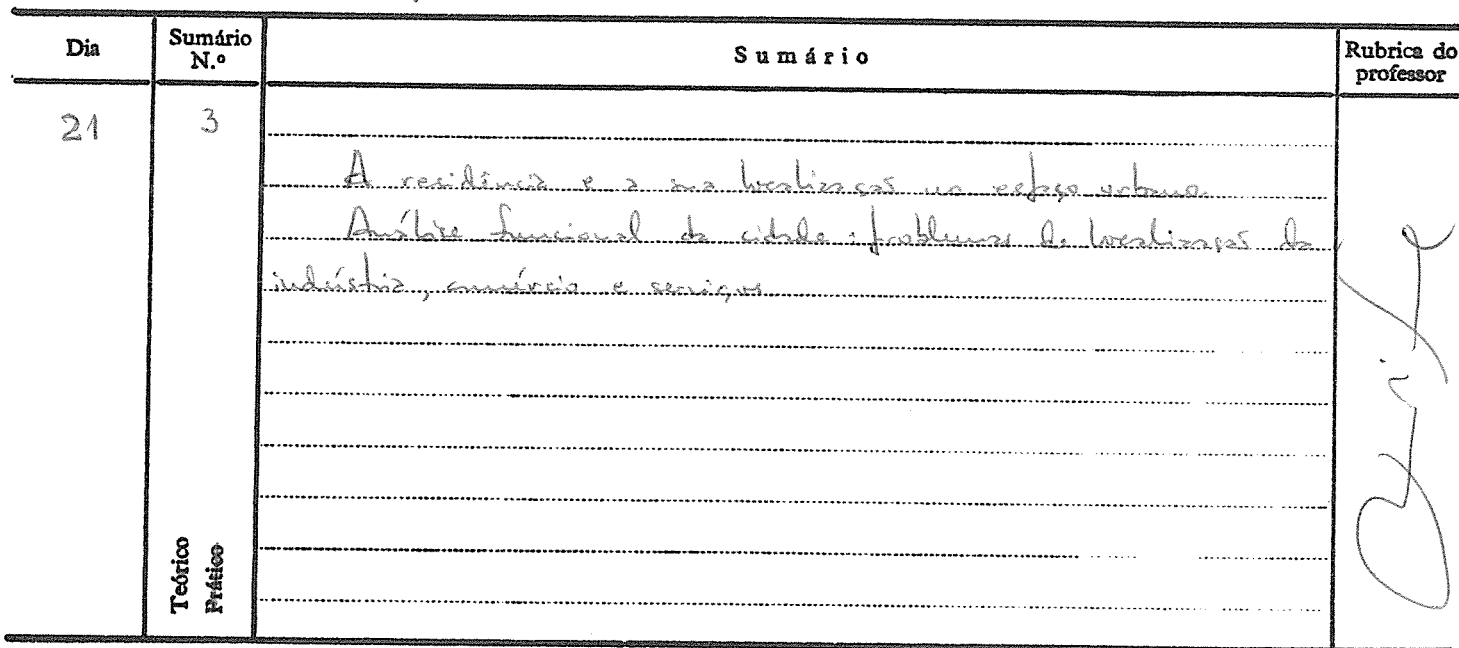 Dia
Sumário N.º
Sumário
Rubrica do professor
21
3
A residência e a sua localização no espaço urbano.
Análise funcional da cidade: problemas de localização da
indústria, comércio e serviços
Teórico
Prático